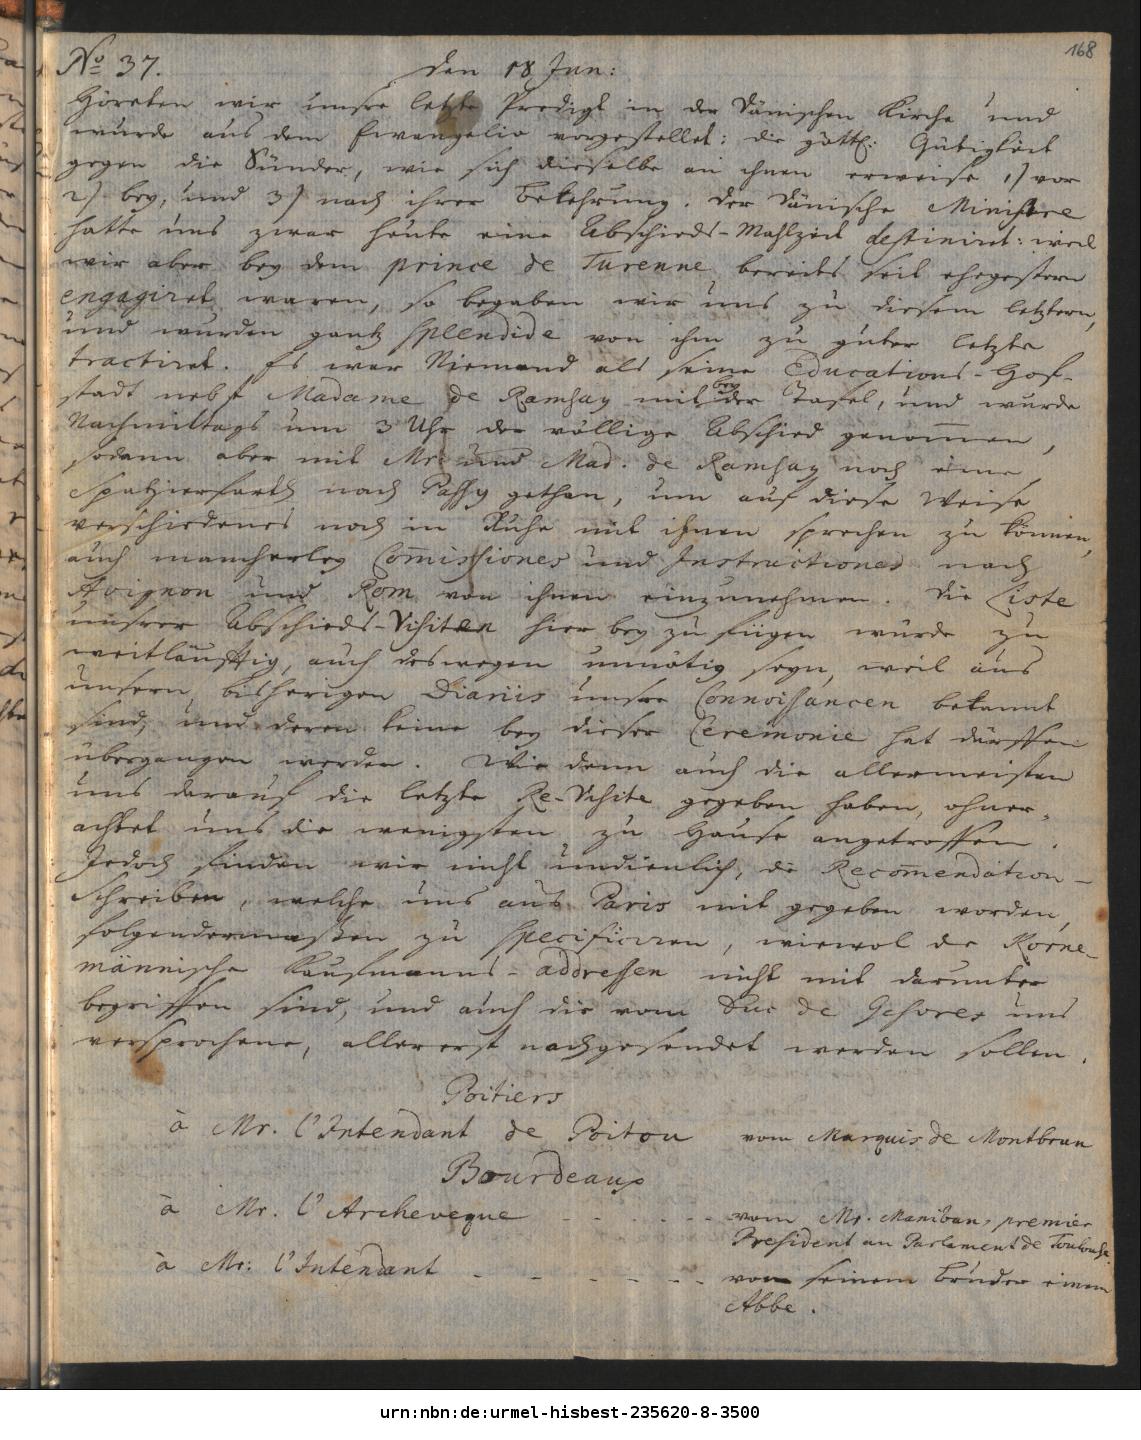 168
No 37. den 18 Jun:
Höreten wir unsre letzte Predigt in der Dänischen Kirche und
wurde aus dem Evangelio vorgestellet: die göttl: Gütigkeit
gegen die Sünder, wie sich dieselbe an ihnen erweise 1) vor
2) bey, und 3) nach ihrer Bekehrung. Der Dänische Ministre
hatte uns zwar heute eine Abschieds-Mahlzeit destiniret: weil
wir aber bey dem prince de Turenne bereits seit ehegestern
engagiret waren, so begaben wir uns zu diesem letztern,
und wurden gantz splendide von ihm zu guter letzte
tractiret. Es war Niemand als seine Educations-Hof-
stadt nebst Madame de Ramsay mit bey der Tafel, und wurde
Nachmittags um 3 Uhr der völlige Abschied genom̅en,
sodann aber mit Mr. und Mad. de Ramsay noch eine
Spatzierfarth nach Passy gethan, um auf diese Weise
verschiedenes noch in Ruhe mit ihnen sprechen zu können,
auch mancherley Com̅issiones und Instructiones nach
Avignon und Rom von ihnen einzunehmen. Die Liste
unsrer Abschieds-Visiten hier bey zu fügen würde zu
weitläufftig, auch deswegen unnötig seyn, weil aus
unsern bisherigen Diariis unsre Connoissancen bekannt
sind, und deren keine bey dieser Ceremonie hat dürffen
übergangen werden. Wie denn auch die allermeisten
uns darauf die letzte Re-Visite gegeben haben, ohner-
achtet uns die wenigsten zu Hause angetroffen.
Jedoch finden wir nicht undienlich, die Recom̅endation-
Schreiben, welche uns aus Paris mit gegeben worden,
folgendermaßen zu specificiren, wiewol die Körne-
männische Kaufmanns-addressen nicht mit darunter
begriffen sind, und auch die vom Duc de Gesvres uns
versprochene, allererst nachgesendet werden sollen.
Poitiers
à Mr. l'Intendant de Poitou vom Marquis de Montbrun
Bourdeaux
à Mr. l'Archeveque - - - - - - vom Mr. Maniban, premier
President au Parlament de Toulouse
à Mr: l'Intendant - - - - - - von seinem Bruder einem
Abbe.
urn:nbn:de:urmel-hisbest-235620-8-3500